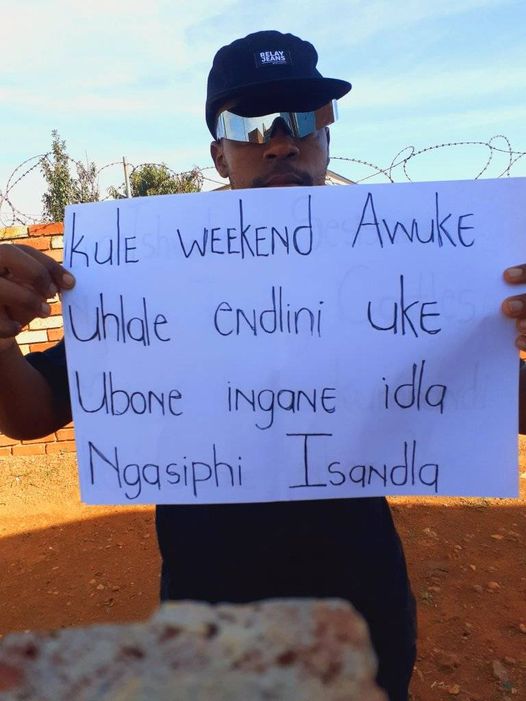 RELAY
JEANS
Kule WEEKEND Awuke
Uhlale endlini uKE
Ubone ingane idla
Ngasiphi Isandla